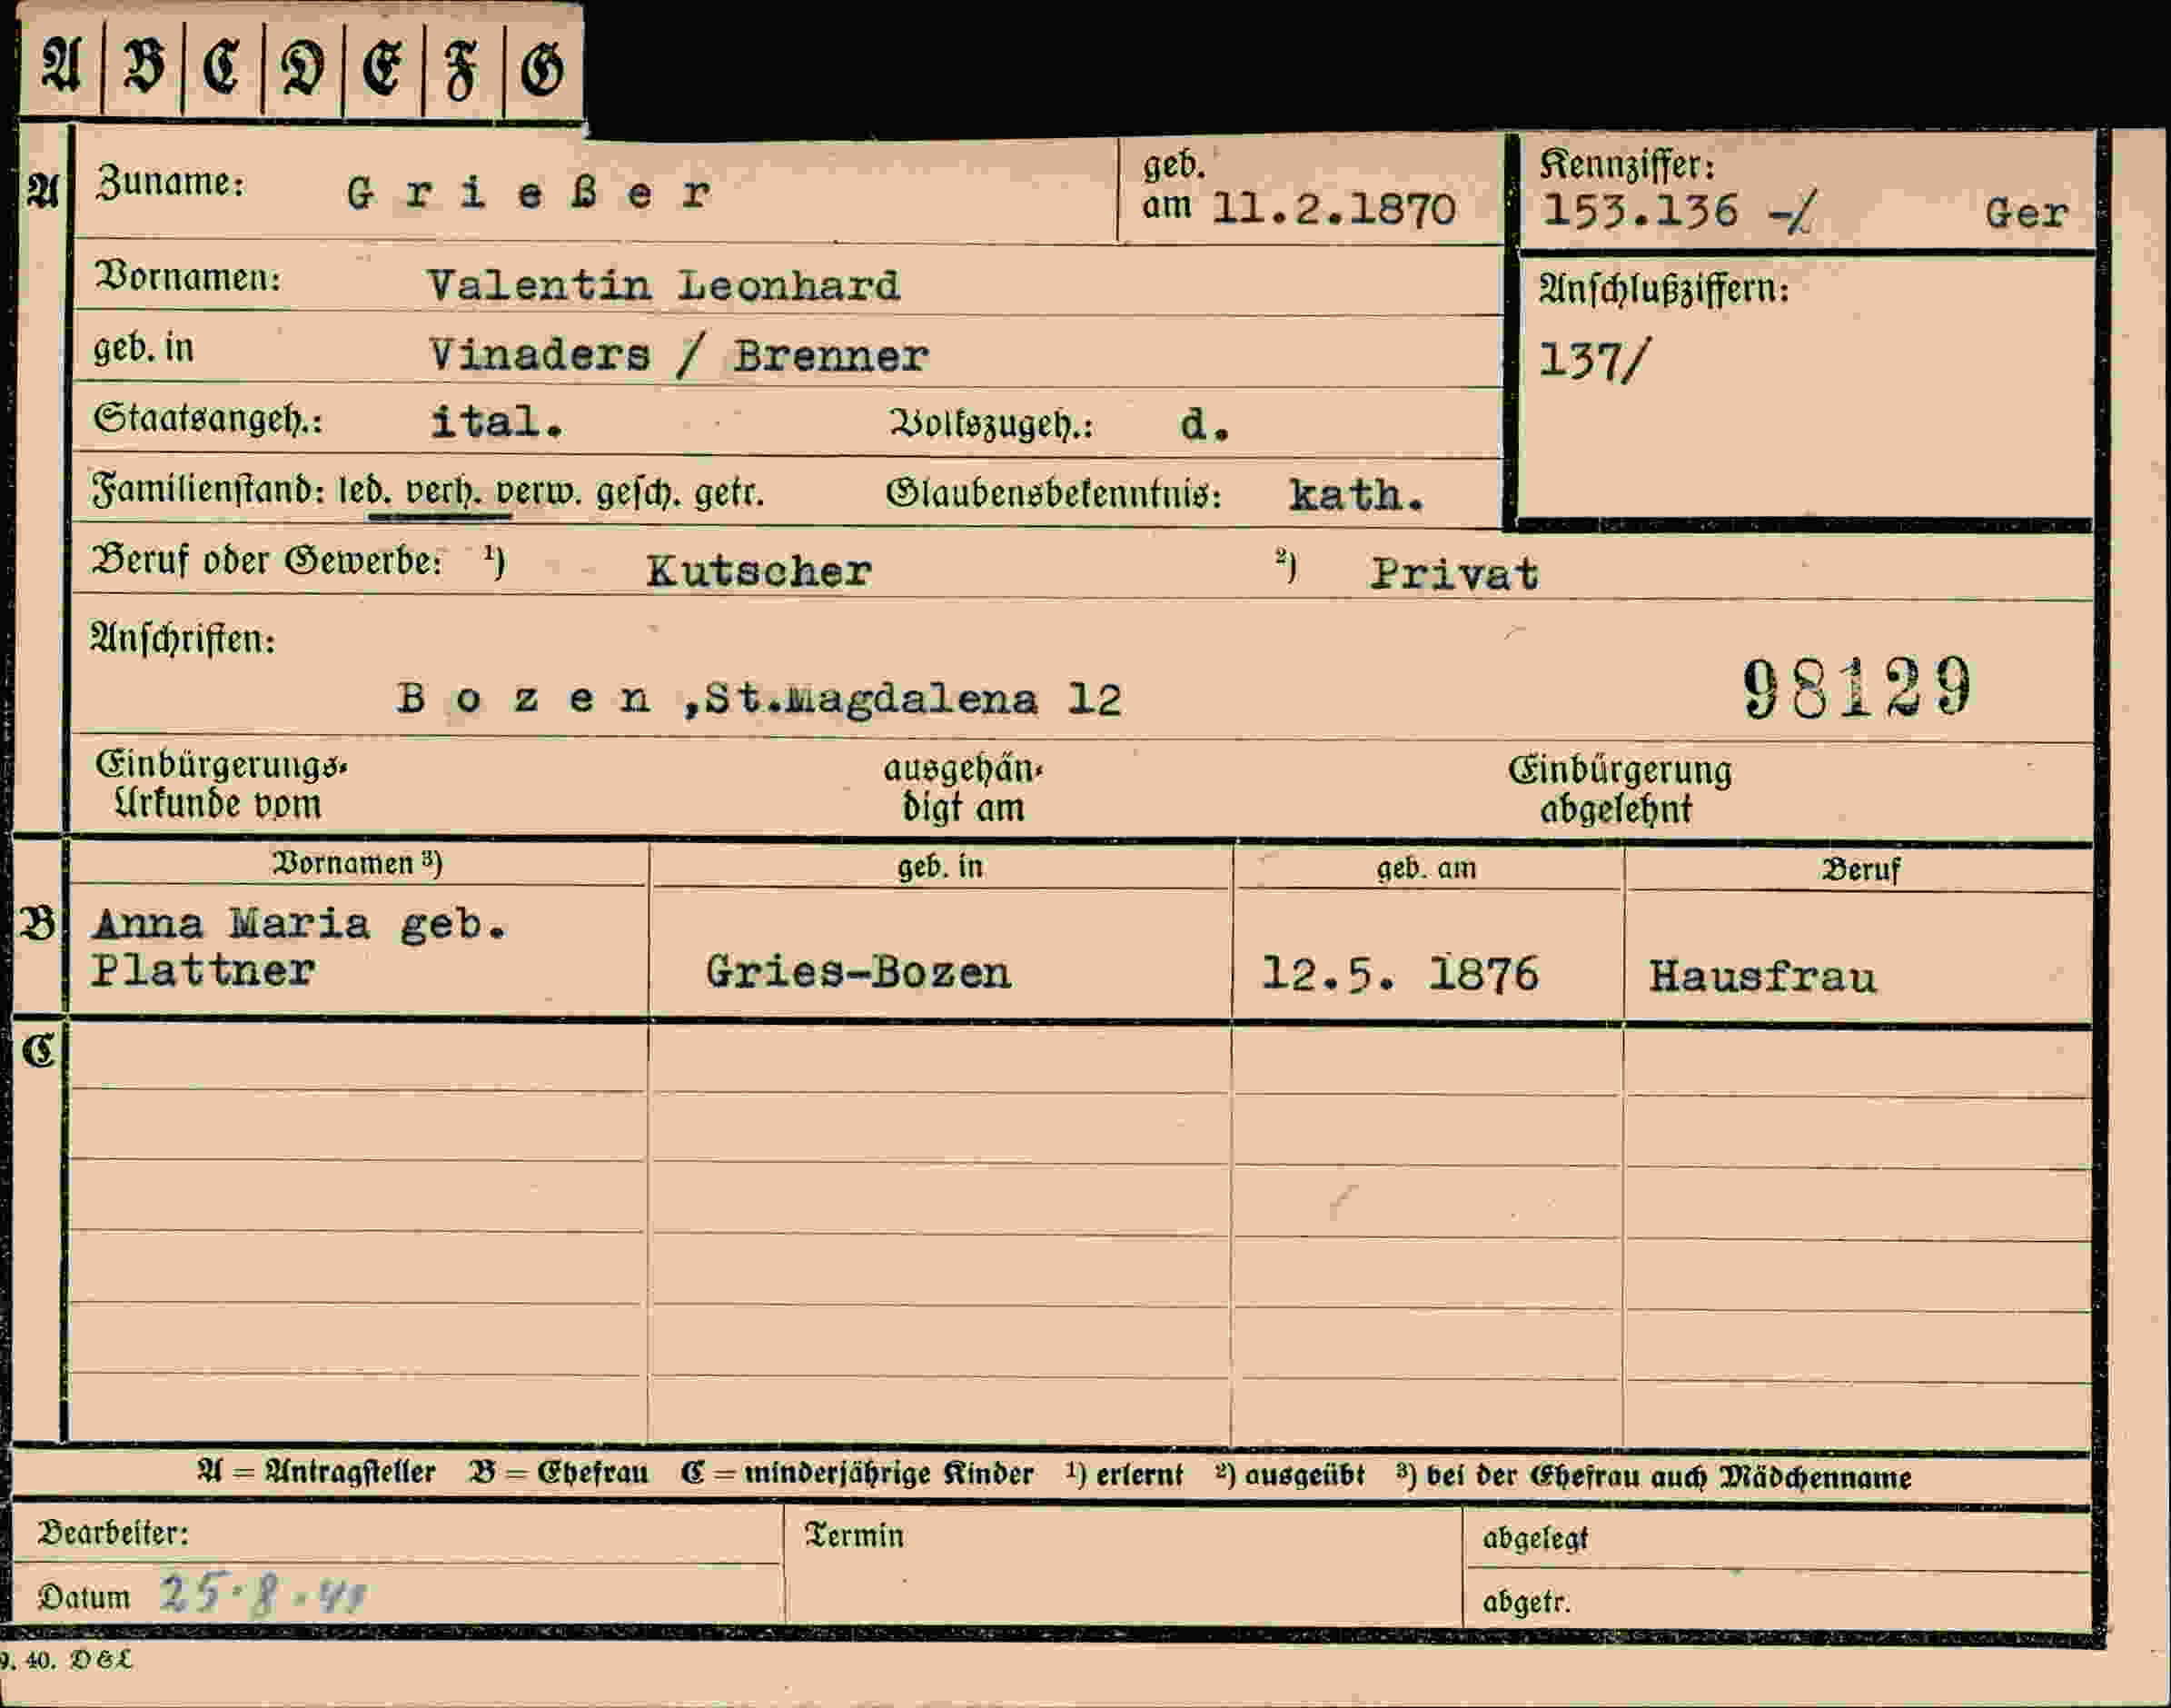 A B C D E F G
A Zuname: Grießer geb. am 11.2.1870 Kennziffer: 153.136 -/ Ger
Vornamen: Valentin Leonhard Anschlußziffern:
geb. in Vinaders / Brenner 137/
Staatsangeh.: ital. Volkszugeh.: d.
Familienstand: led. verh. verw. gesch. getr. Glaubensbekenntnis: kath.
Beruf oder Gewerbe: ¹) Kutscher ²) Privat
Anschriften:
Bozen ,St.Magdalena 12 98129
Einbürgerungs- ausgehän- Einbürgerung
Urkunde vom digt am abgelehnt
Vornamen ³) geb. in geb. am Beruf
B Anna Maria geb.
Plattner Gries-Bozen 12.5. 1876 Hausfrau
C
A = Antragsteller B = Ehefrau C = minderjährige Kinder ¹) erlernt ²) ausgeübt ³) bei der Ehefrau auch Mädchenname
Bearbeiter: Termin abgelegt
Datum 25.8. abgetr.
9. 40. D&L